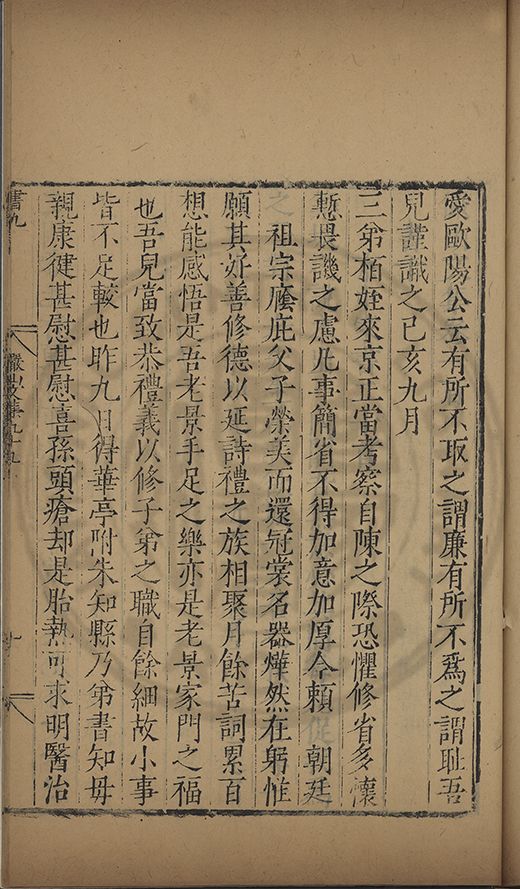 愛歐陽公云有所不取之謂廉有所不爲之謂恥吾
兒謹識之己亥九月
三弟栢姪來京正當考察自陳之際恐懼修省多懷
慙畏譏之慮凡事簡省不得加意加厚今賴 朝廷
之 祖宗廕庇父子榮美而還冠裳名器燁然在躬惟
願其好善修德以延詩禮之族相聚月餘苦詞累百
想能感悟是吾老景手足之樂亦是老景家門之福
也吾兒當致恭禮義以修子弟之職自餘細故小事
皆不足較也昨九日得華亭附朱知縣乃弟書知毋
親康健甚慰甚慰喜孫頭瘡却是胎熱可求明醫治
書九